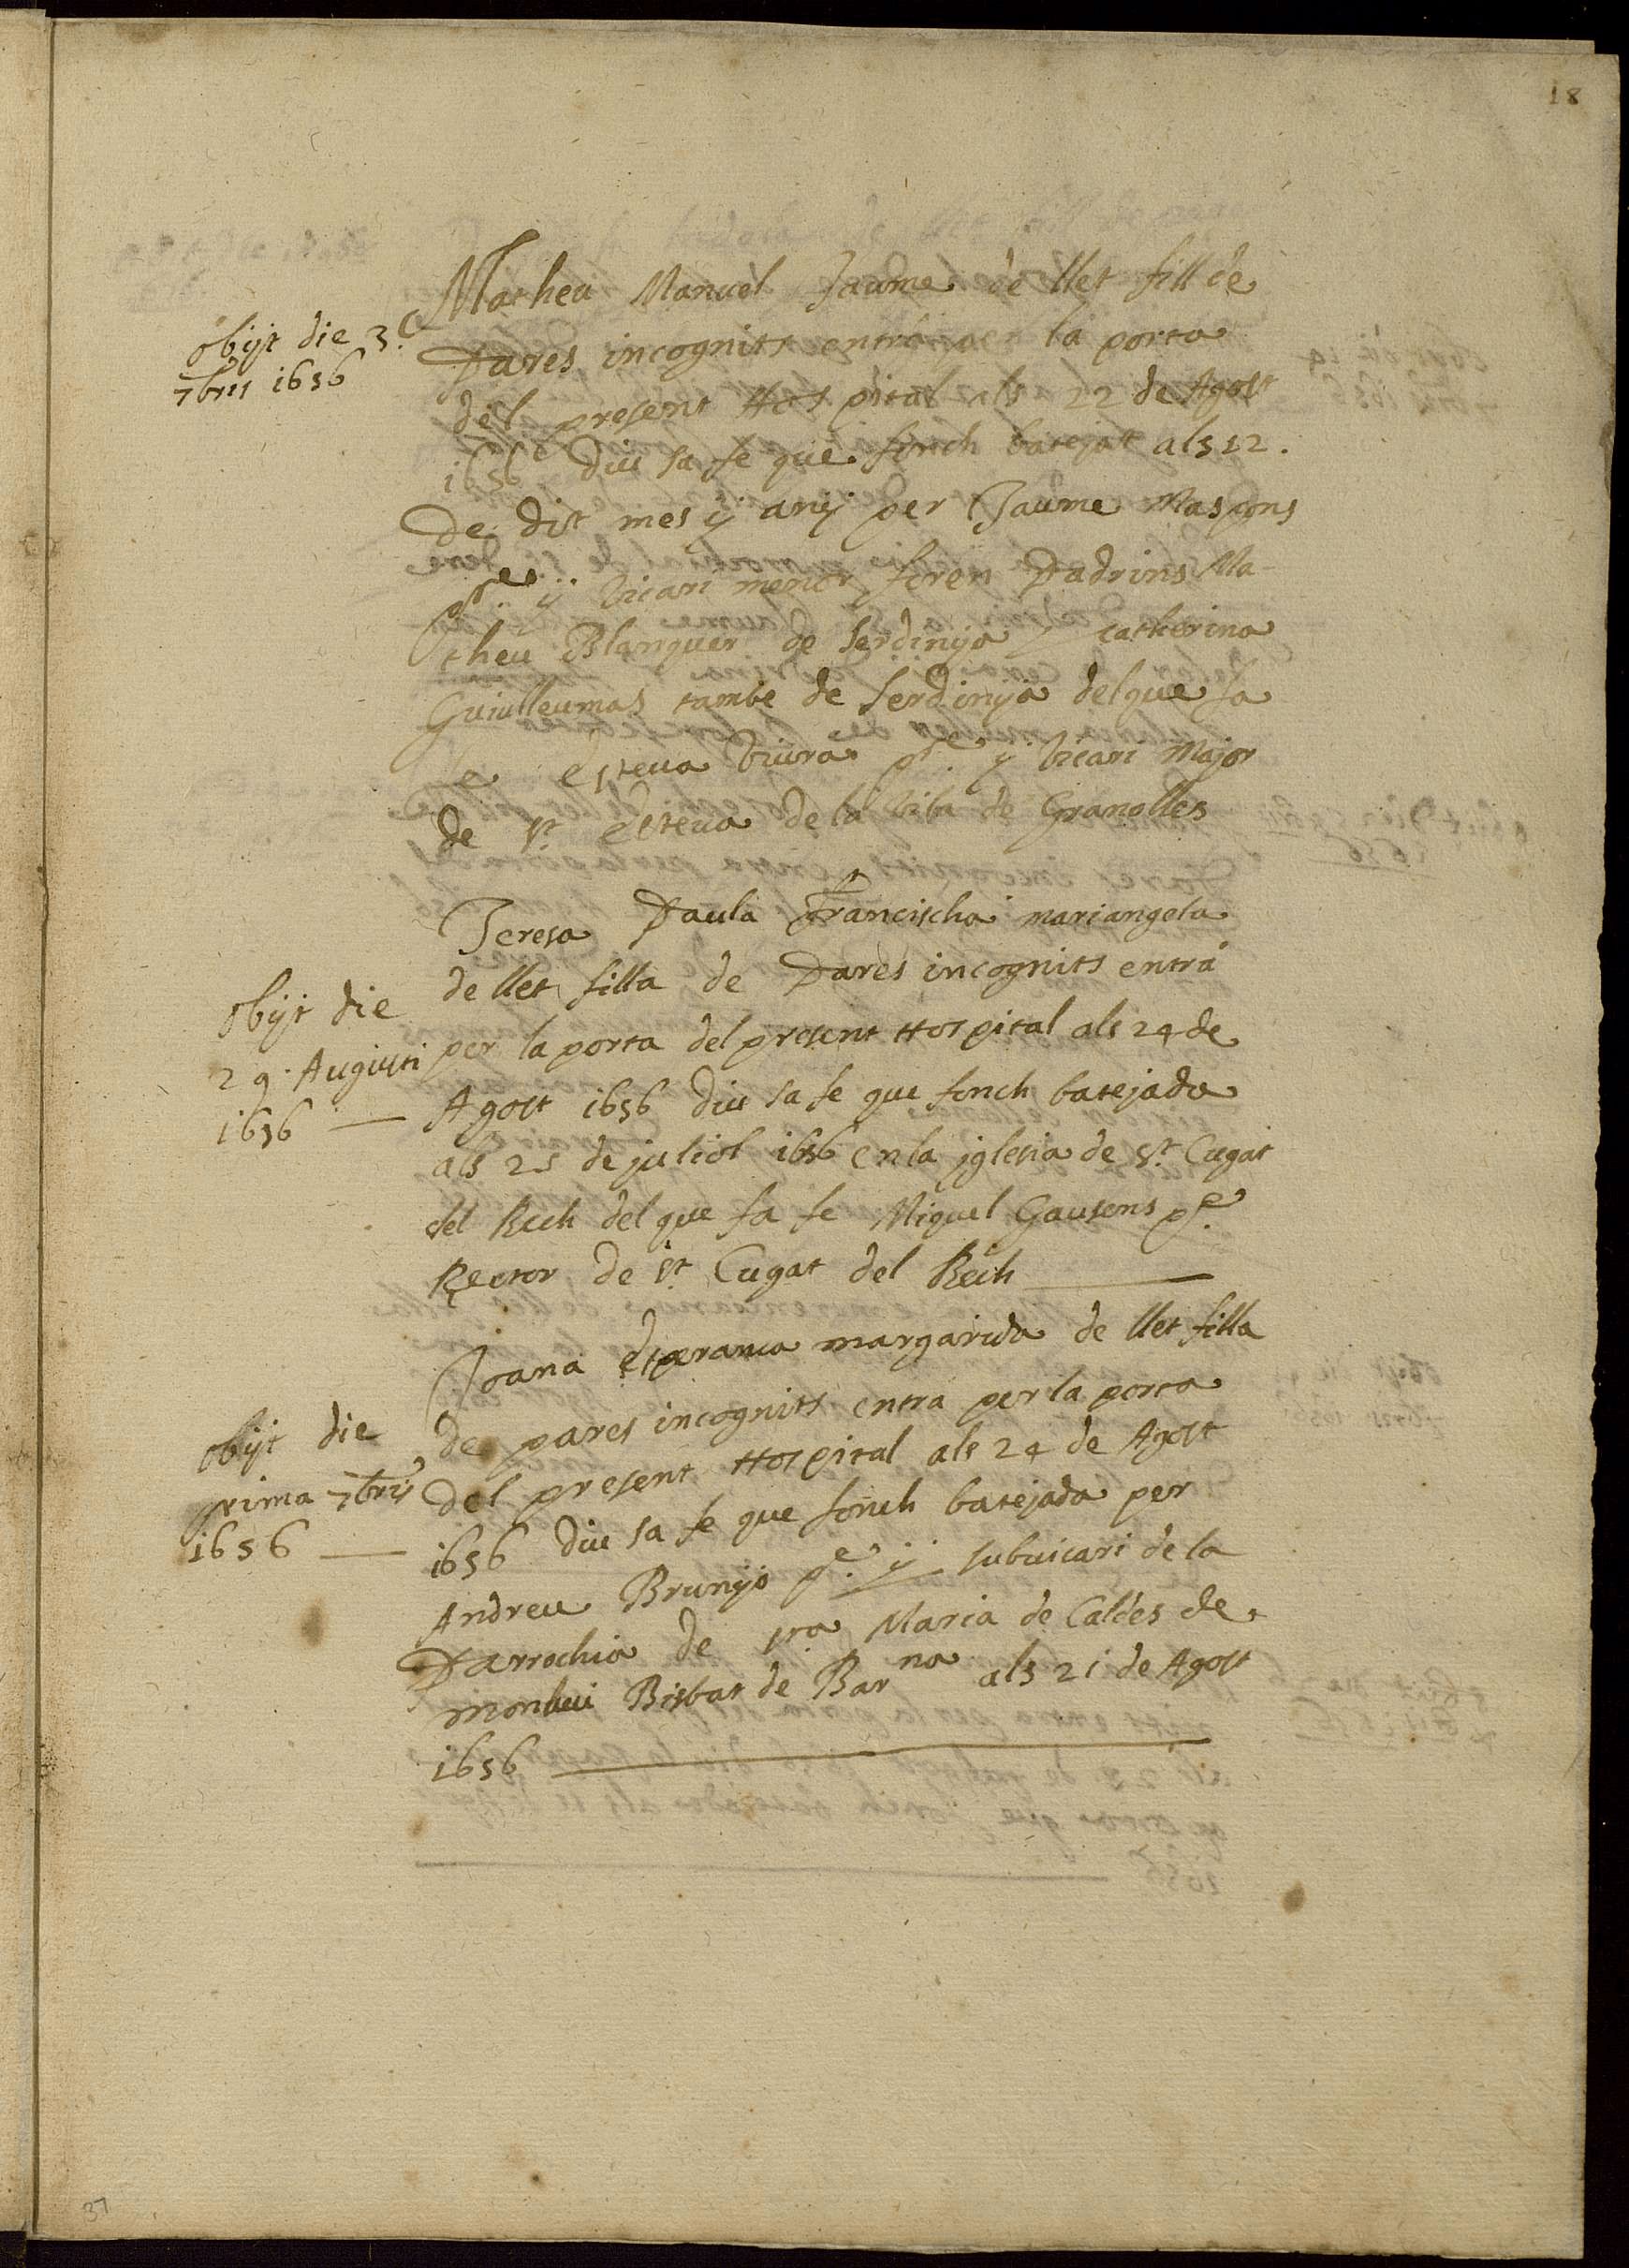 18
obijt die 3.
7bris 1656
Matheu Manuel Jaume de llet fill de
Pares incognits entrà per la porta
del present Hospital als 22 de Agost
1656 diu sa fe que fonch batejat als 12.
De dit mes ÿ anÿ per Jaume Maspons
pre ÿ vicari menor foren Padrins Ma-
theu Blanquer de Serdinya y catherina
Guiulleumas tambe de Serdinya delque fa
fe esteva Viura pre. y vicari Major
de st. esteva de la vila de Granolles
obijt die
29. Augusti
1656 —
Teresa Paula Francischa mariangela
de llet filla de Pares incognits entrà
per la porta del present Hospital als 24 de
Agost 1656 diu sa fe que fonch batejada
als 25 de juliol 1656 en la jglesia de st. Cugat
del Rech del que fa fe Miquel Gausens pre.
Rector de st Cugat del Rech —
obijt die
prima 7bris
1656 —
Joana esperansa margarida de llet filla
de pares incognits entra per la porta
del present Hospital als 24 de Agost
1656 diu sa fe que fonch batejada per
Andreu Brunyo pre. ÿ subvicari de la
Parrochia de sta Maria de Caldes de
monbui Bisbat de Barna als 21 de Agost
1656 —
37